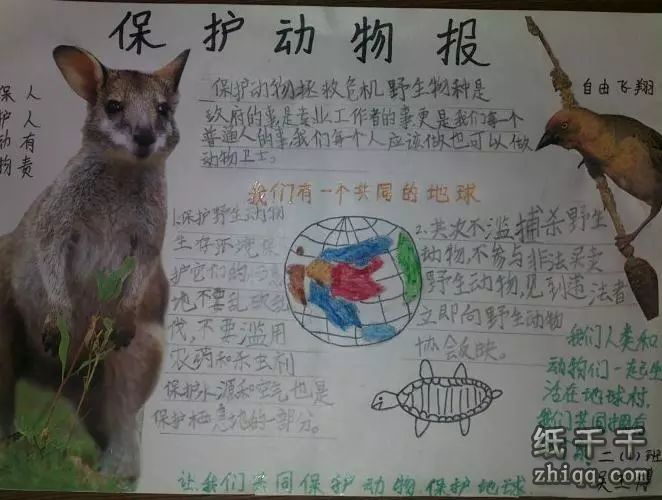 保护动物报
保护动物
人人有责
自由飞翔
保护动物拯救危机野生物种是
政府的事是专业工作者的事更是我们每一个
普通人的事,我们每个人应该做也可以做
动物卫士。
我们有一个共同的地球
1.保护野生动物
生存环境保
护它们的栖息
地,不要乱砍乱
伐,不要滥用
农药和杀虫剂
保护水源和空气也是
保护栖息地的一部分。
2.滥捕杀野生
动物,不参与非法买卖
野生动物,见到违法者
立即向野生动物
协会反映。
我们人类和
动物们一起生
活在地球村,
我们共同拥有
二(1)班
让我们共同保护动物保护地球
纸千千
zhiqq.com